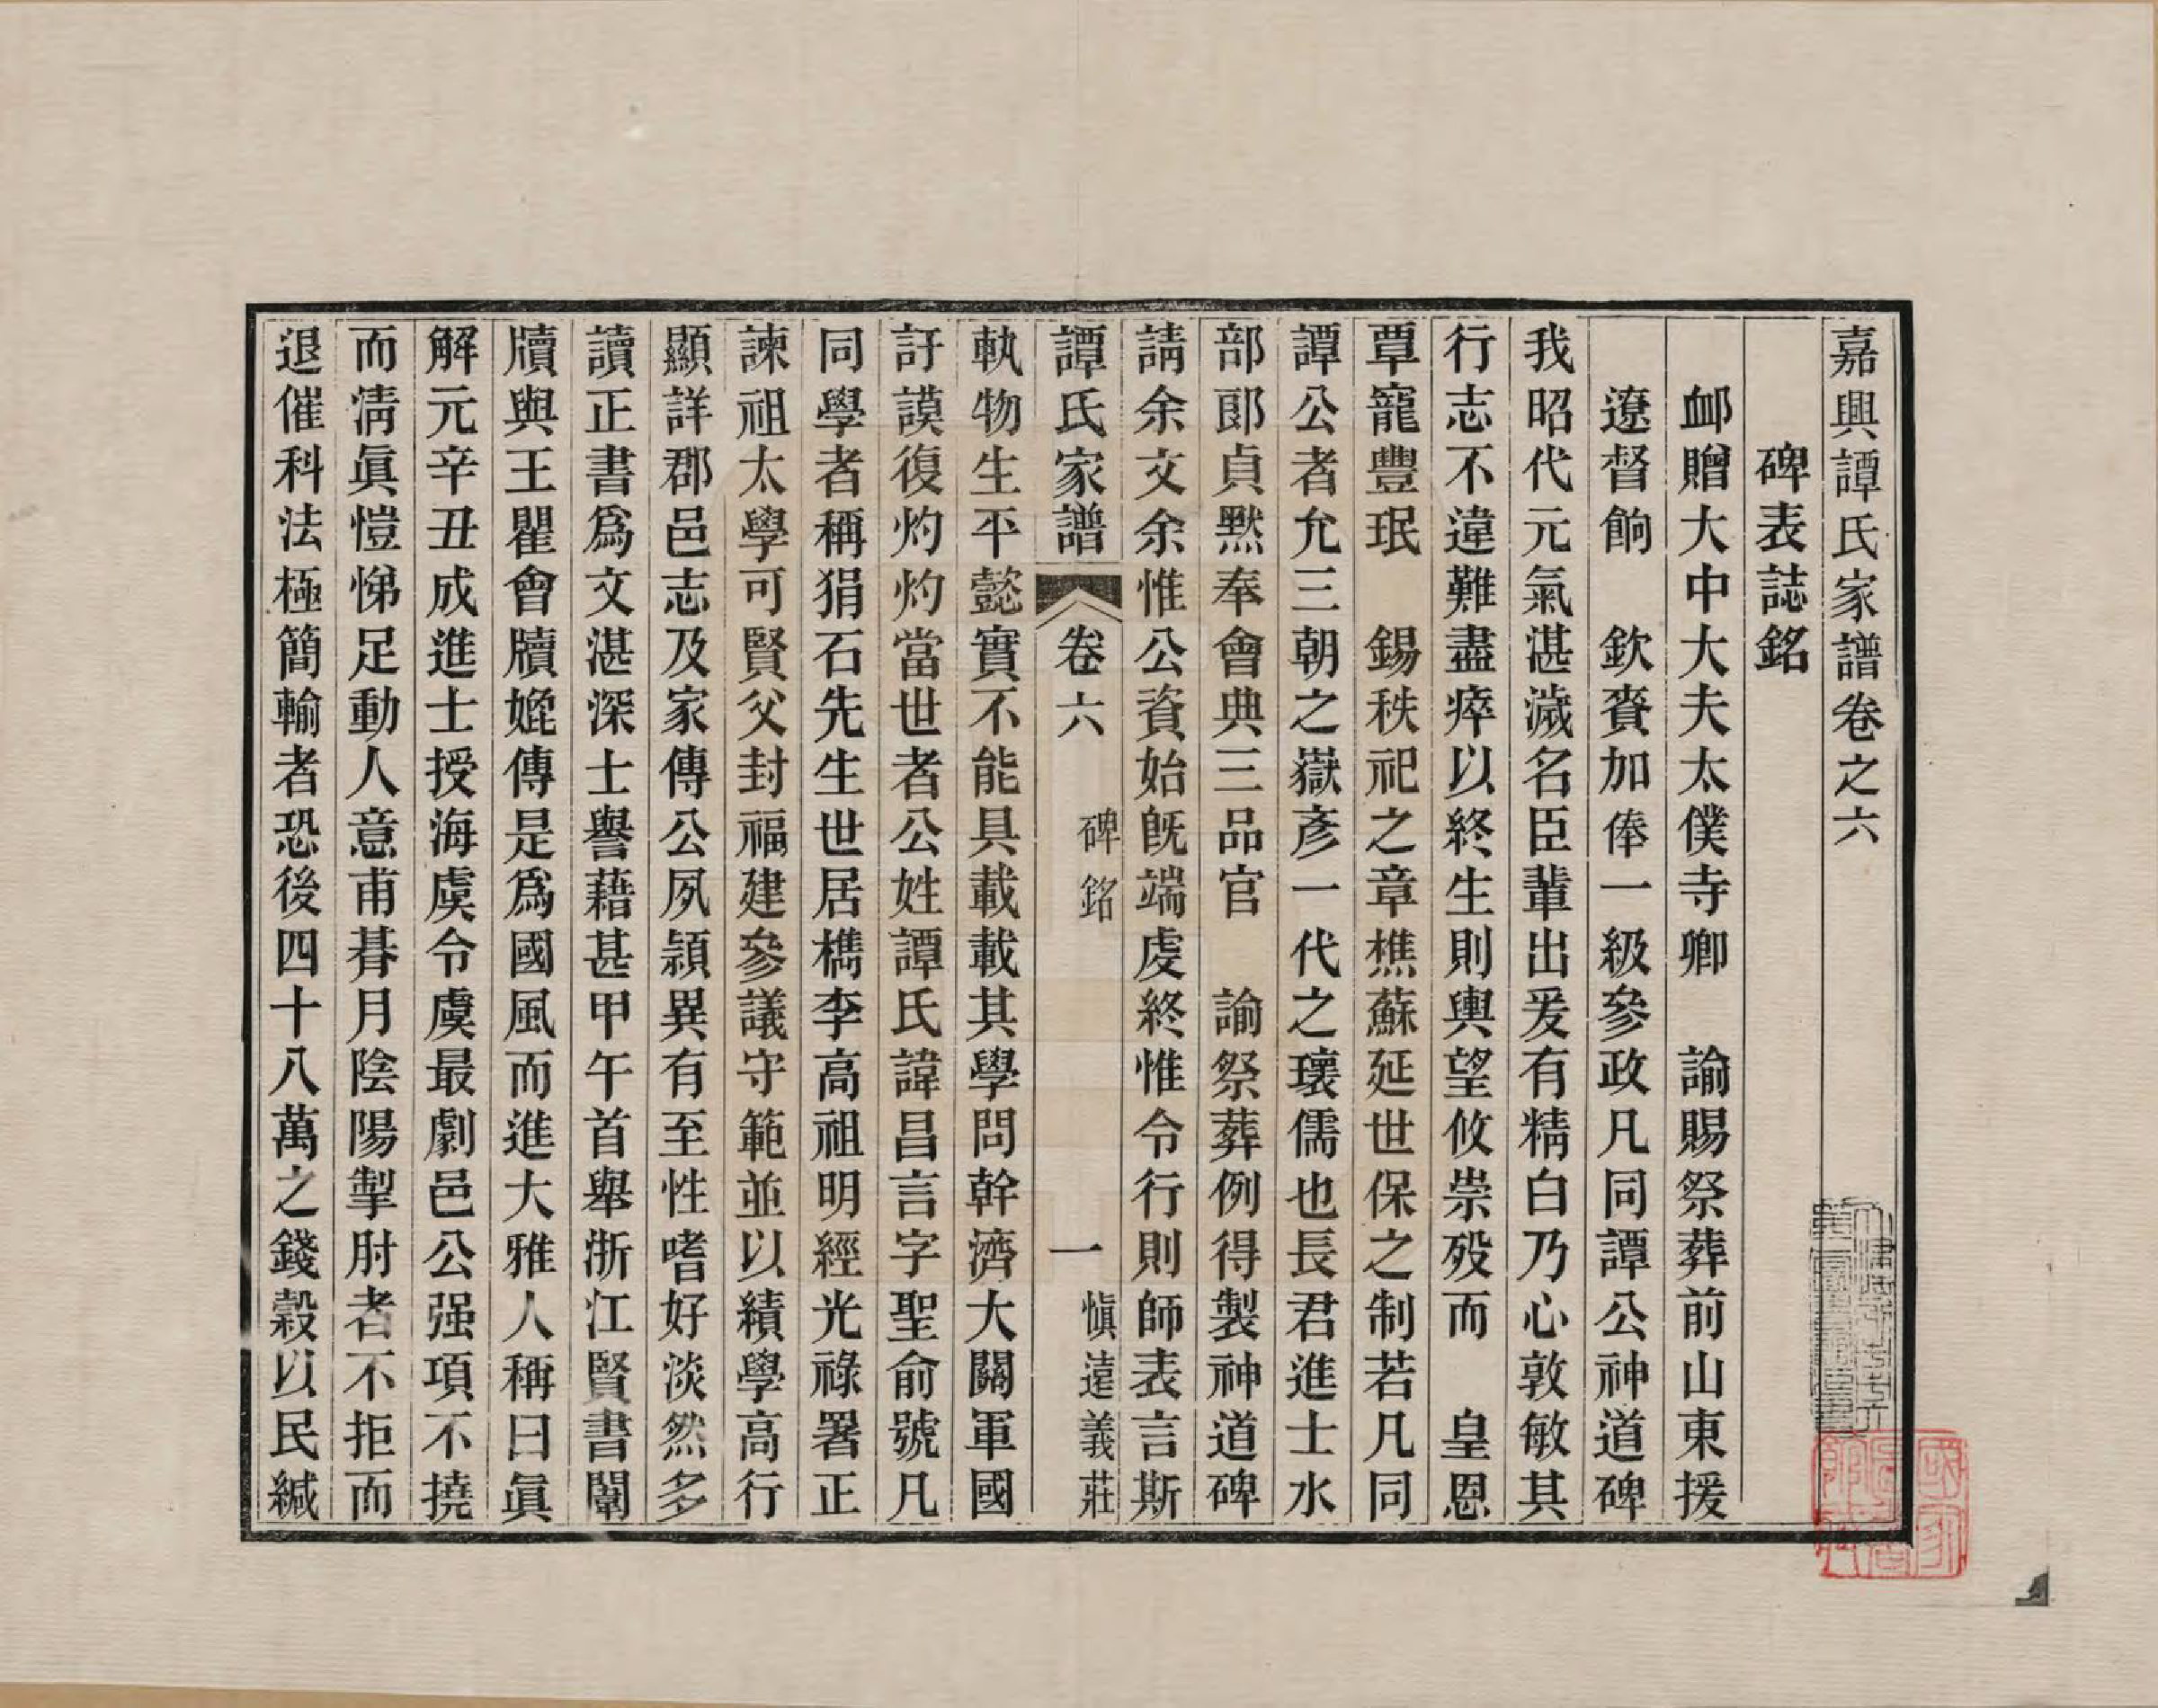 嘉興譚氏家譜卷之六
碑表誌銘
卹贈大中大夫太僕寺卿　諭賜祭葬前山東援
遼督餉　欽賚加俸一級參政凡同譚公神道碑
我昭代元氣湛濊名臣輩出爰有精白乃心敦敏其
行志不違難盡瘁以終生則輿望攸崇歿而　皇恩
覃寵豐珉　錫秩祀之章樵蘇延世保之制若凡同
譚公者允三朝之嶽彥一代之瓌儒也長君進士水
部郎貞默奉會典三品官　諭祭葬例得製神道碑
請余文余惟公資始旣端虔終惟令行則師表言斯
譚氏家譜　卷六　碑銘　一　愼遠義莊
執物生平懿實不能具載載其學問幹濟大關軍國
訏謨復灼灼當世者公姓譚氏諱昌言字聖俞號凡
同學者稱狷石先生世居檇李高祖明經光祿署正
諫祖太學可賢父封福建參議守範並以績學高行
顯詳郡邑志及家傳公夙穎異有至性嗜好淡然多
讀正書爲文湛深士譽藉甚甲午首舉浙江賢書闈
牘與王瞿會牘媲傳是爲國風而進大雅人稱曰眞
解元辛丑成進士授海虞令虞最劇邑公强項不撓
而淸眞愷悌足動人意甫朞月陰陽掣肘者不拒而
退催科法極簡輸者恐後四十八萬之錢穀以民緘